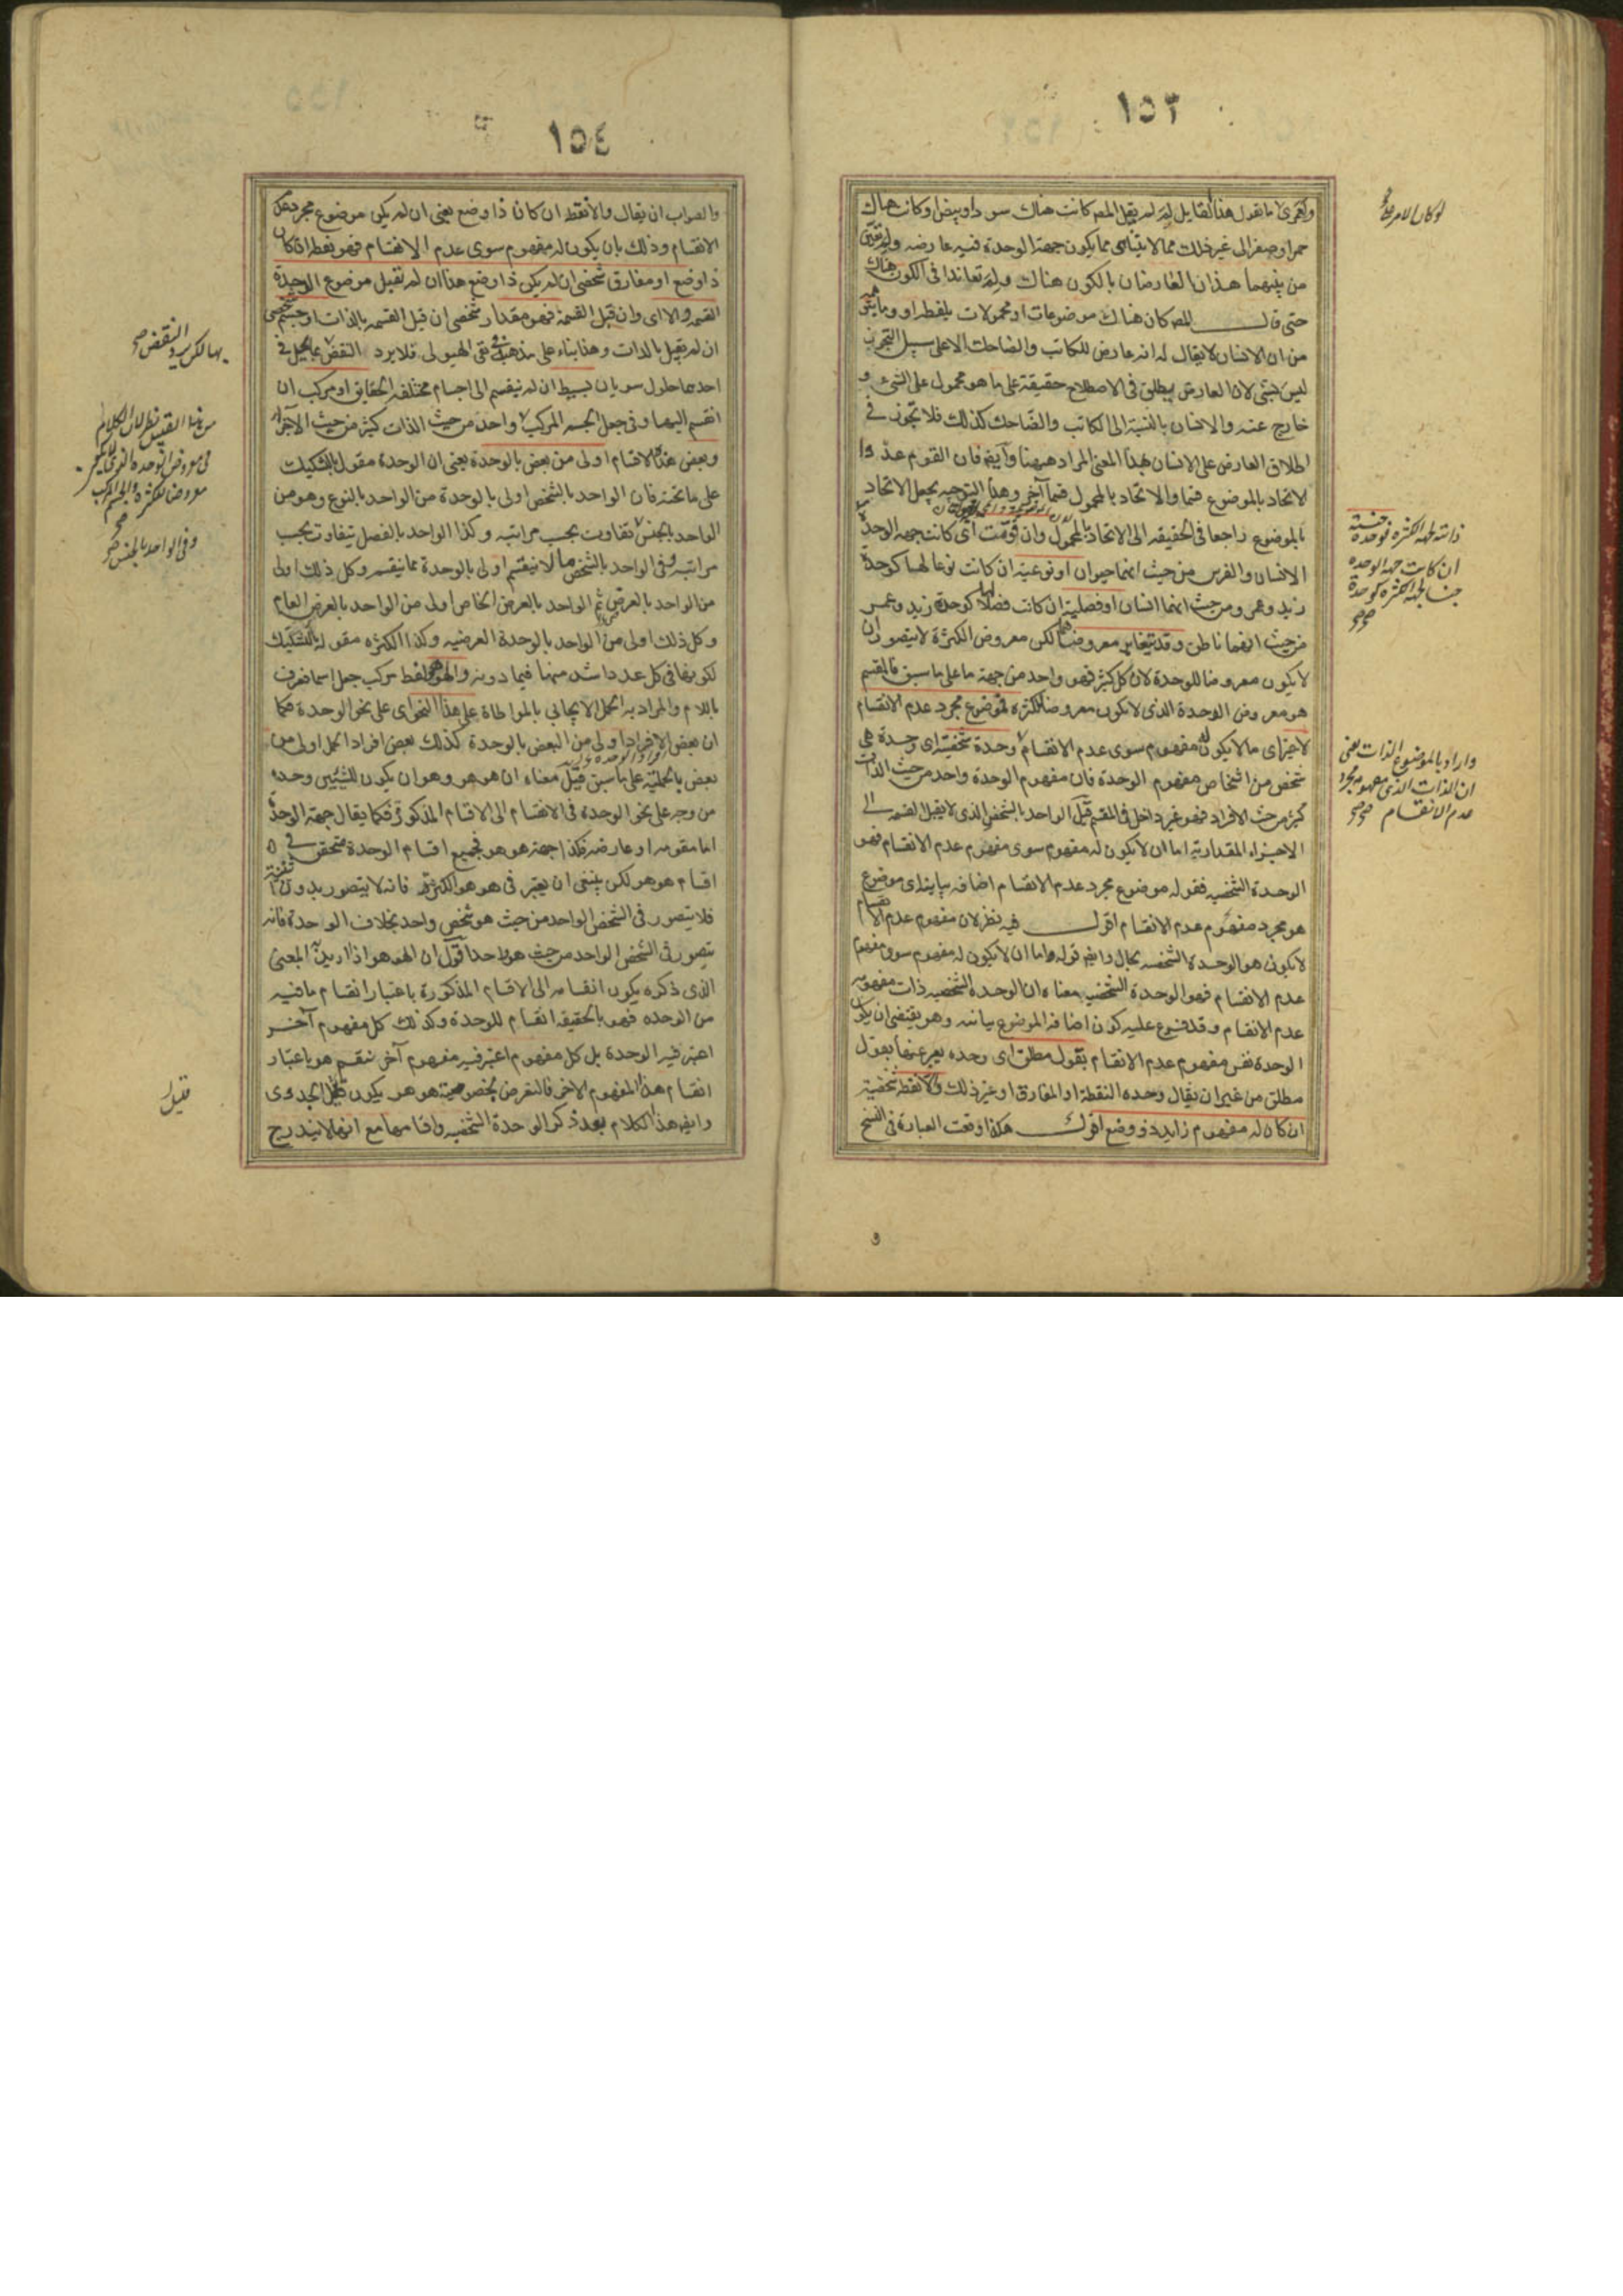 ١٥٣
لم يقل المص كانت هناك سوادا وبيضا وكانت هناك
حمرا وصفرا الى غير ذلك مما لا يتناهى مما يكون جهة الوحدة فيه عارضه ولم تعين
من بينهما هذان العارضان بالكون هناك ولم تعاندا فى الكون هناك
حتى قال المص كان هناك موضوعات او محمولات بلفظ او وما يتوهم
من ان الانسان لا يقال له انه عارض للكاتب والضاحك الا على سبيل التجوز
ليس بشئ لان العارض يطلق فى الاصطلاح حقيقة على ما هو محمول على الشئ و
خارج عنه والانسان بالنسبة الى الكاتب والضاحك كذلك فلا تجوز فى
اطلاق العارض على الانسان بهذا المعنى المراد ههنا وايضا فان القوم عدوا
الاتحاد بالموضوع قسما والاتحاد بالمحمول قسما آخر وهذا التوجيه يجعل الاتحاد
بالموضوع راجعا فى الحقيقه الى الاتحاد بالمحمول وان قومت اى كانت جهه الوحدة
الانسان والفرس من حيث انهما حيوان او نوعية ان كانت نوعا لها كوحدة
زيد وعمرو من حيث انهما انسان او فصلية ان كانت فصلا لها كوحدة زيد وعمرو
من حيث انهما ناطق وقد يتغاير معروضاهما لكن معروض الكثرة لا يتصور ان
لا يكون معروضا للوحدة لان كل كثير فهو واحد من جهة ما على ما سبق فالمقسم
هو معروض الوحدة الذى لا يكون معروضا للكثره فموضوع مجرد عدم الانقسام
لا غير اى ما لا يكون له مفهوم سوى عدم الانقسام وحدة شخصية اى وحدة هى
شخص من اشخاص مفهوم الوحدة فان مفهوم الوحدة واحد من حيث الذات
كثير من حيث الافراد فهو غير داخل فى المقسم قيل الواحد بالشخص الذى لا يقبل القسمه الى
الاجزاء المقدارية اما ان لا يكون له مفهوم سوى مفهوم عدم الانقسام فهو
الوحدة الشخصيه فقوله موضوع مجرد عدم الانقسام اضافه بيانية اى موضوع
هو مجرد مفهوم عدم الانقسام اقول فيه نظر لان مفهوم عدم الانقسام
لا يكون هو الوحدة الشخصيه بحال وايضا قوله اما ان لا يكون له مفهوم سوى مفهوم
عدم الانقسام فهو الوحدة الشخصيه معناه ان الوحدة الشخصيه ذات مفهومه
عدم الانقسام وقد فرع عليه كون اضافه الموضوع بيانيه وهو يقتضى ان يكون
الوحدة نفس مفهوم عدم الانقسام بقول مطلق اى وحده يعبر عنها بقول
مطلق من غير ان يقال وحده النقطة او المفارق او غير ذلك والا نقطة شخصية
ان كان له مفهوم زايد ذو وضع اقول هكذا وقعت العبارة فى النسخ
لو كان الامر
ان كانت جهه الوحده
جنسا لجهه الكثره كوحدة
صح
واراد بالموضوع الذات يعنى
ان الذات الذى مفهومه مجرد
عدم الانقسام صح
١٥٤
والصواب ان يقال والا نقطه ان كان ذا وضع يعنى ان لم يكن موضوع مجرد عدم
الانقسام وذلك بان يكون له مفهوم سوى عدم الانقسام فهو نقطه ان كان
ذا وضع او مفارق شخصى ان لم يكن ذا وضع هذا ان لم تقبل موضوع الوحدة
القسمه والا اى وان قبل القسمة فهو مقدار شخصى ان قبل القسمه بالذات او جسم شخصى
ان لم يقبل بالذات وهذا بناء على مذهب نفى الهيولى فلا يرد النقض بما يحل فى
احدهما حلول سريان بسيط ان لم ينقسم الى اجسام مختلفه الحقايق او مركب ان
انقسم اليها وفى جعل الجسم المركب واحدا من حيث الذات كثير من حيث الاجزاء
وبعض هذه الاقسام اولى من بعض بالوحدة يعنى ان الوحدة مقول بالتشكيك
على ما تحته فان الواحد بالشخص اولى بالوحدة من الواحد بالنوع وهو من
الواحد بالجنس بتفاوت بحسب مراتبه وكذا الواحد بالفصل يتفاوت بحسب
مراتبه وفى الواحد بالشخص ما لا ينقسم اولى بالوحدة مما ينقسم وكل ذلك اولى
من الواحد بالعرض ثم الواحد بالعرض الخاص اولى من الواحد بالعرض العام
وكل ذلك اولى من الواحد بالوحدة العرضيه وكذا الكثره مقولة بالتشكيك
لكونها فى كل عدد اشد منها فيما دونه والهوهو لفظ مركب جعل اسما فعرف
باللام والمراد به الحمل الايجابى بالمواطاة على هذا النحو اى على نحو الوحدة فكما
ان بعض الافراد اولى من البعض بالوحدة كذلك بعض افراد الحمل اولى من
بعض بالحملية على ما سبق قيل معناه ان هو هو وهو ان يكون للشيئين وحده
من وجه على نحو الوحدة فى الانقسام الى الاقسام المذكورة فكما يقال جهة الوحدة
اما مقومه او عارضه فكذا جهة هو هو فجميع اقسام الوحدة متحقق فى
اقسام هو هو لكن ينبغى ان يعتبر فى هو هو الكثرة فانه لا يتصور بدون
فلا يتصور فى الشخص الواحد من حيث هو شخص واحد بخلاف الوحدة فانه
يتصور فى الشخص الواحد من حيث هو واحد اقول ان الهوهو اذا اريد به المعنى
الذى ذكره يكون انقسامه الى الاقسام المذكورة باعتبار انقسام ما فيه
من الوحده فهو بالحقيقه انقسام للوحدة وكذلك كل مفهوم آخر
اعتبر فيه الوحدة بل كل مفهوم اعتبر فيه مفهوم آخر ينقسم هو باعتبار
انقسام هذا المفهوم الاخر فالتعرض بخصوصية هو هو يكون قليل الجدوى
وايضا هذا الكلام بعد ذكر الوحدة الشخصيه واقسامها مع انها لا يندرج
النقض صح
من هذا القبيل نظر لان الكلام
فى معروض الوحده الذى لا يكون
معروضا للكثره والجسم المركب
صح
وفى الواحد بالجنس صح